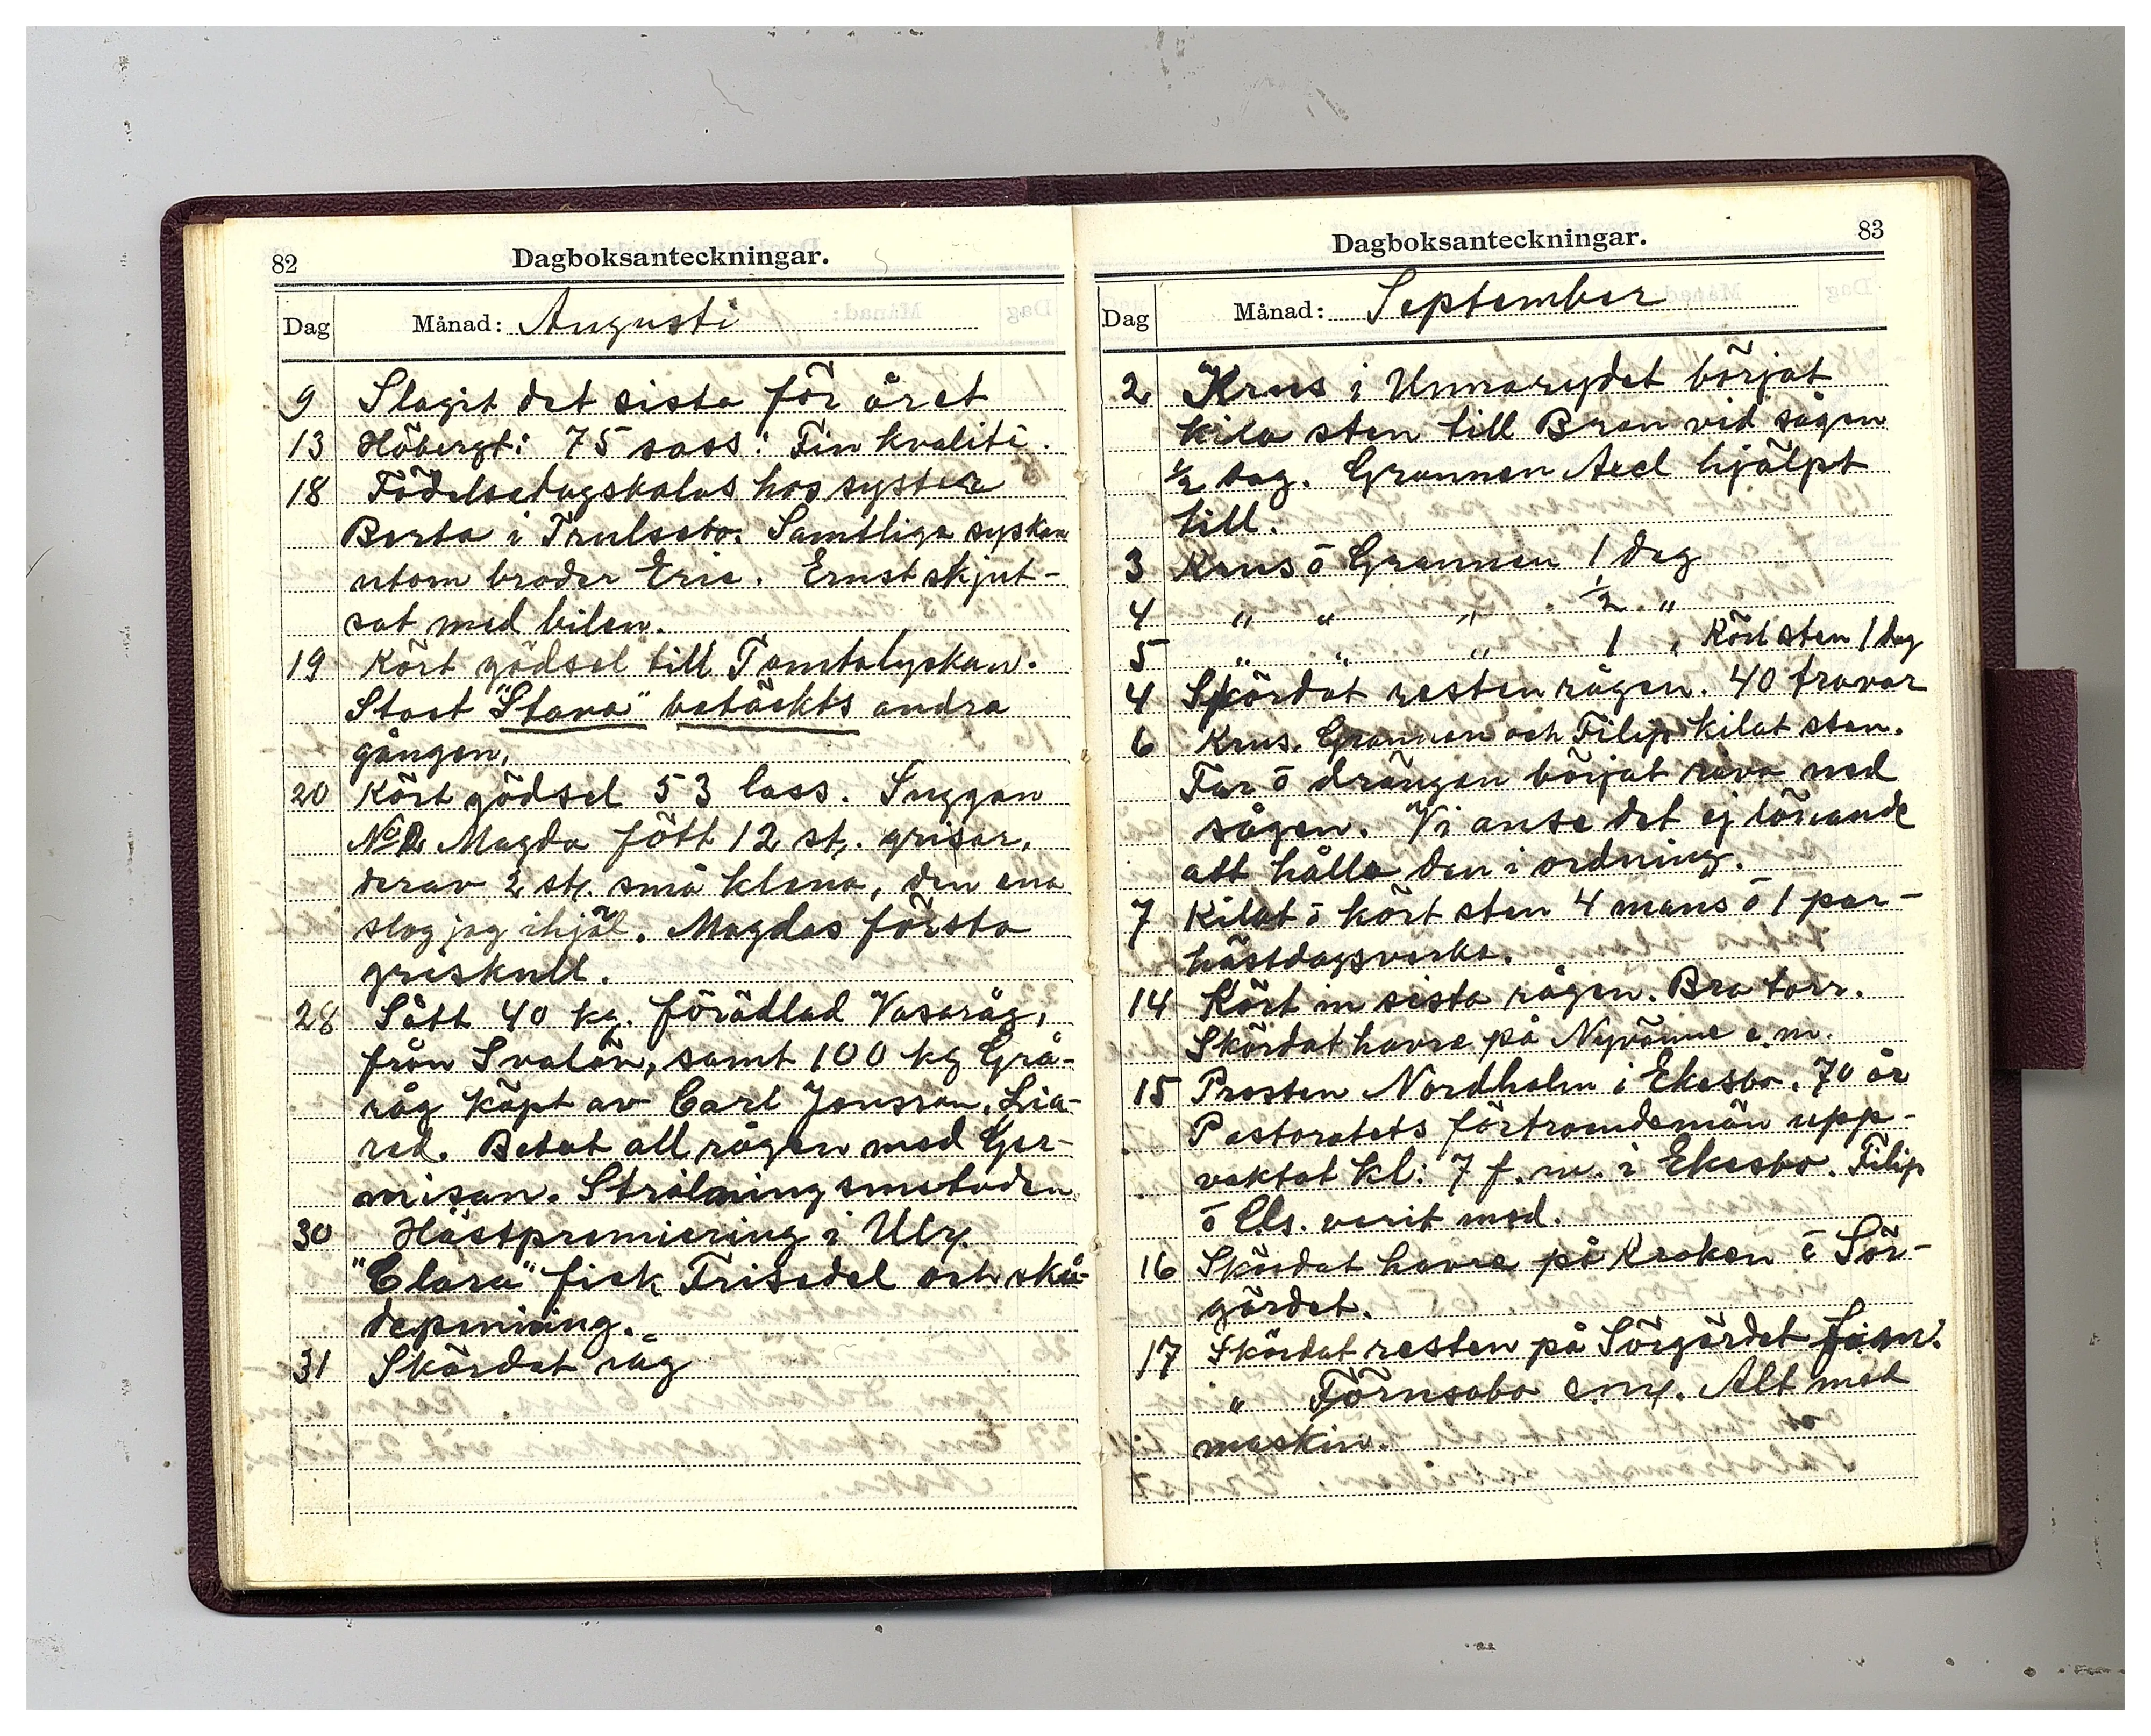 82
Dagboksanteckningar.
Dag Månad: Augusti
9 Slagit det sista för året
13 Höbergt: 75 sass: Fin kvalité.
18 Födelsedagskalas hos syster
Berta i Trulsebo. Samtliga syskon
utom broder Eric. Ernst skjut-
sat med bilen.
19 Kört gödsel till Tomtalyckan.
Stoet "Stava" betäckts andra
gången.
20 Kört gödsel 53 lass. Suggan
No 2 Magda fött 12 st. grisar,
derav 2 st. små klena, den ena
slog jag ihjäl. Magdas första
griskull.
28 Sått 40 kg. förädlad Vasaråg,
från Svalöv, samt 100 kg Grå-
råg köpt av Carl Jonsson, Lia-
red. Betat all rågen med Ger-
misan. Strålningsmetoden
30 Hästpremiering i Ulr.
"Clara" fick Frisedel och skå-
depenning.
31 Skördat råg
83
Dagboksanteckningar.
Dag Månad: September
2 Krus i Unnarydet börjat
kila sten till Bron vid sågen
½ dag. Grannen Axel hjälpt
till.
3 Krus ō Grannen 1 dag
4 " " " ½ "
5 " " " 1 " Kört sten 1 dag
4 Skördat resten rågen. 40 travar
6 Krus, Grannen och Filip kilat sten.
Far ō drängen börjat riva ned
sågen. Vi anse det ej lönande
att hålla den i ordning.
7 Kilat ō kört sten 4 mans ō 1 par-
hästdagsverke.
14 Kört in sista rågen. Bra torr.
Skördat havre på e.m.
15 Prosten Nordholm i Ekesbo. 70 år
Pastoratets förtroendemän upp-
vaktat kl: 7 f. m. i Ekesbo. Filip
ō Els. varit med.
16 Skördat havre på Kroken ō Sör-
gärdet.
17 Skördat resten på Sörgärdet f.m.
" Törnsabo e.m. Alt med
maskin.